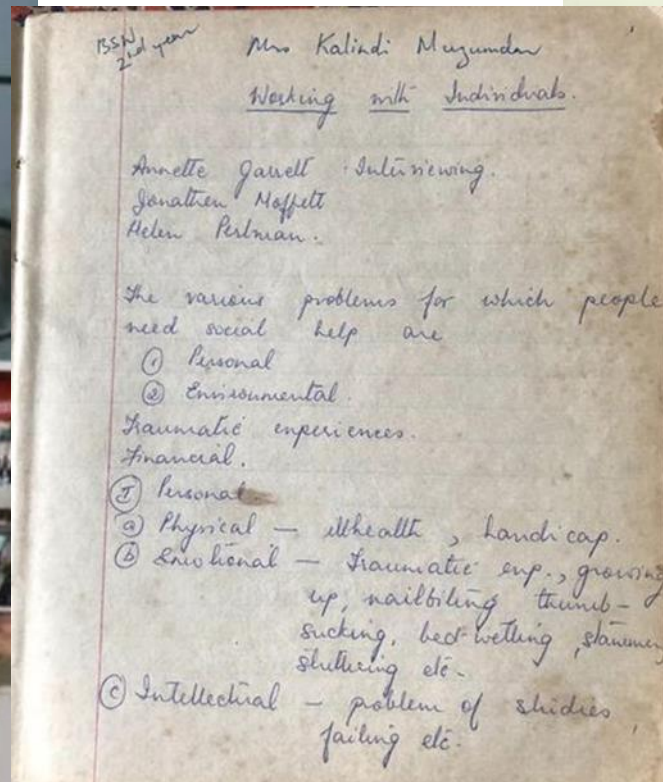 BSW
2nd year
Mrs Kalindi Muzumdar
Working with Individuals.
Annette Garrett Interviewing.
Jonathen Moffett
Helen Perlman.
The various problems for which people
need social help are
① Personal
② Environmental.
Traumatic experiences.
Financial.
Ⓘ Personal
ⓐ Physical — illhealth, handicap.
ⓑ Emotional — Traumatic exp., growing
up, nailbiting thumb-
sucking, bed-wetting,
stuttering etc.
ⓒ Intellectual — problem of studies,
failing etc.